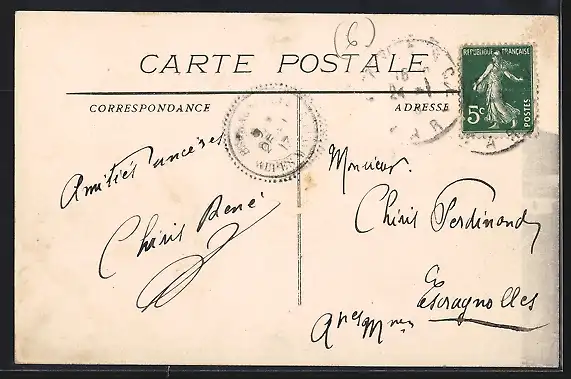 (6)
CARTE POSTALE
CORRESPONDANCE
ADRESSE
REPUBLIQUE FRANÇAISE
5c
POSTES
Amitiés sincères
Chiris René
Monsieur
Chiris Ferdinand
Escragnolles
Apes Mmes